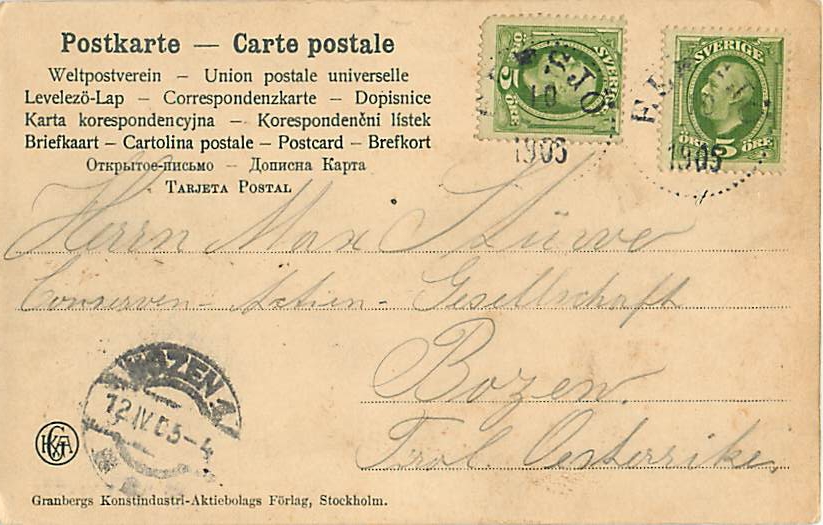 Postkarte — Carte postale
Weltpostverein – Union postale universelle
Levelezö-Lap – Correspondenzkarte – Dopisnice
Karta korespondencyjna – Korespondenční lístek
Briefkaart – Cartolina postale – Postcard – Brefkort
Открытое-письмо – Дописна Карта
Tarjeta Postal
5 ÖRE
10
1905
SVERIGE
ÖRE 5 ÖRE
1905
Herrn Max Stüwe
Conserven-Actien-Gesellschaft
Bozen.
Tirol. Oesterrike.
BOZEN 1
12 IV 05-4
Granbergs Konstindustri-Aktiebolags Förlag, Stockholm.